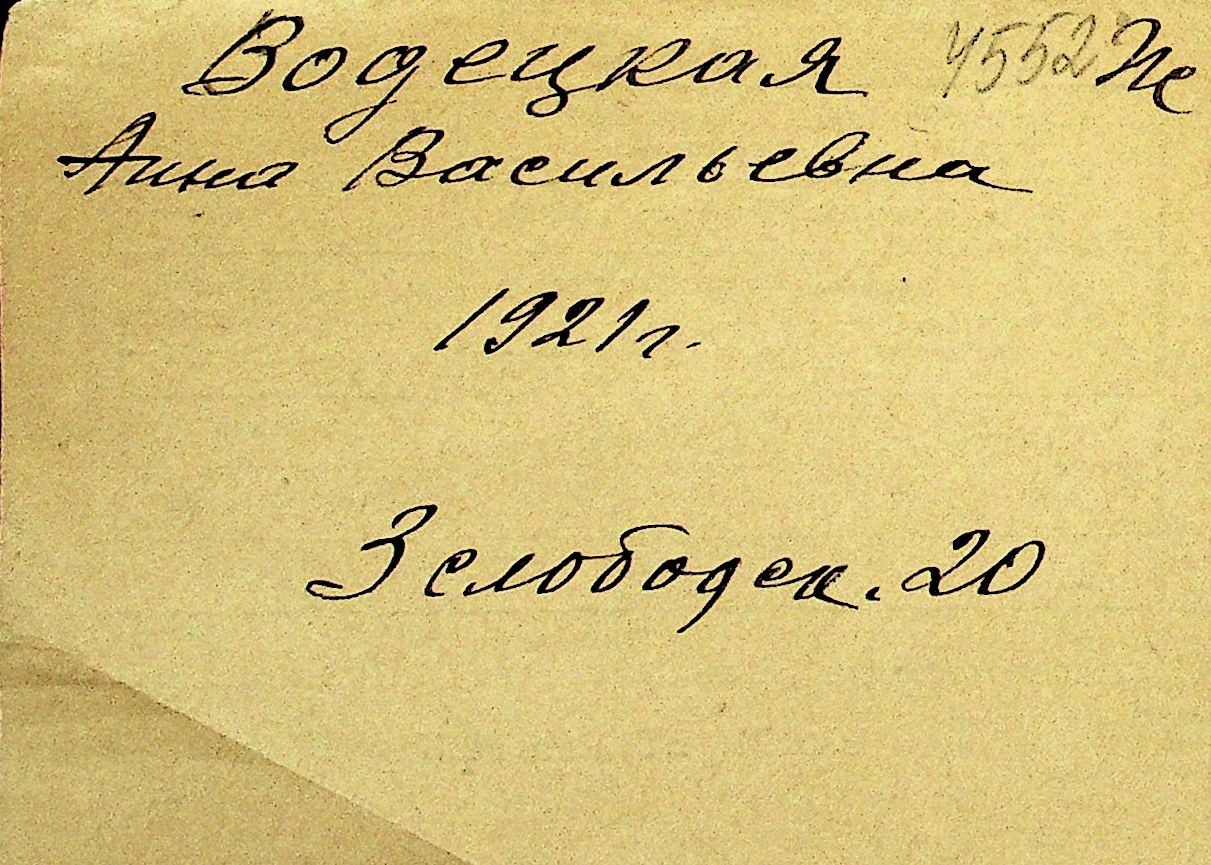 Водецкая 4552 Ж
Анна Васильевна
1921 г.
3 слободск. 20